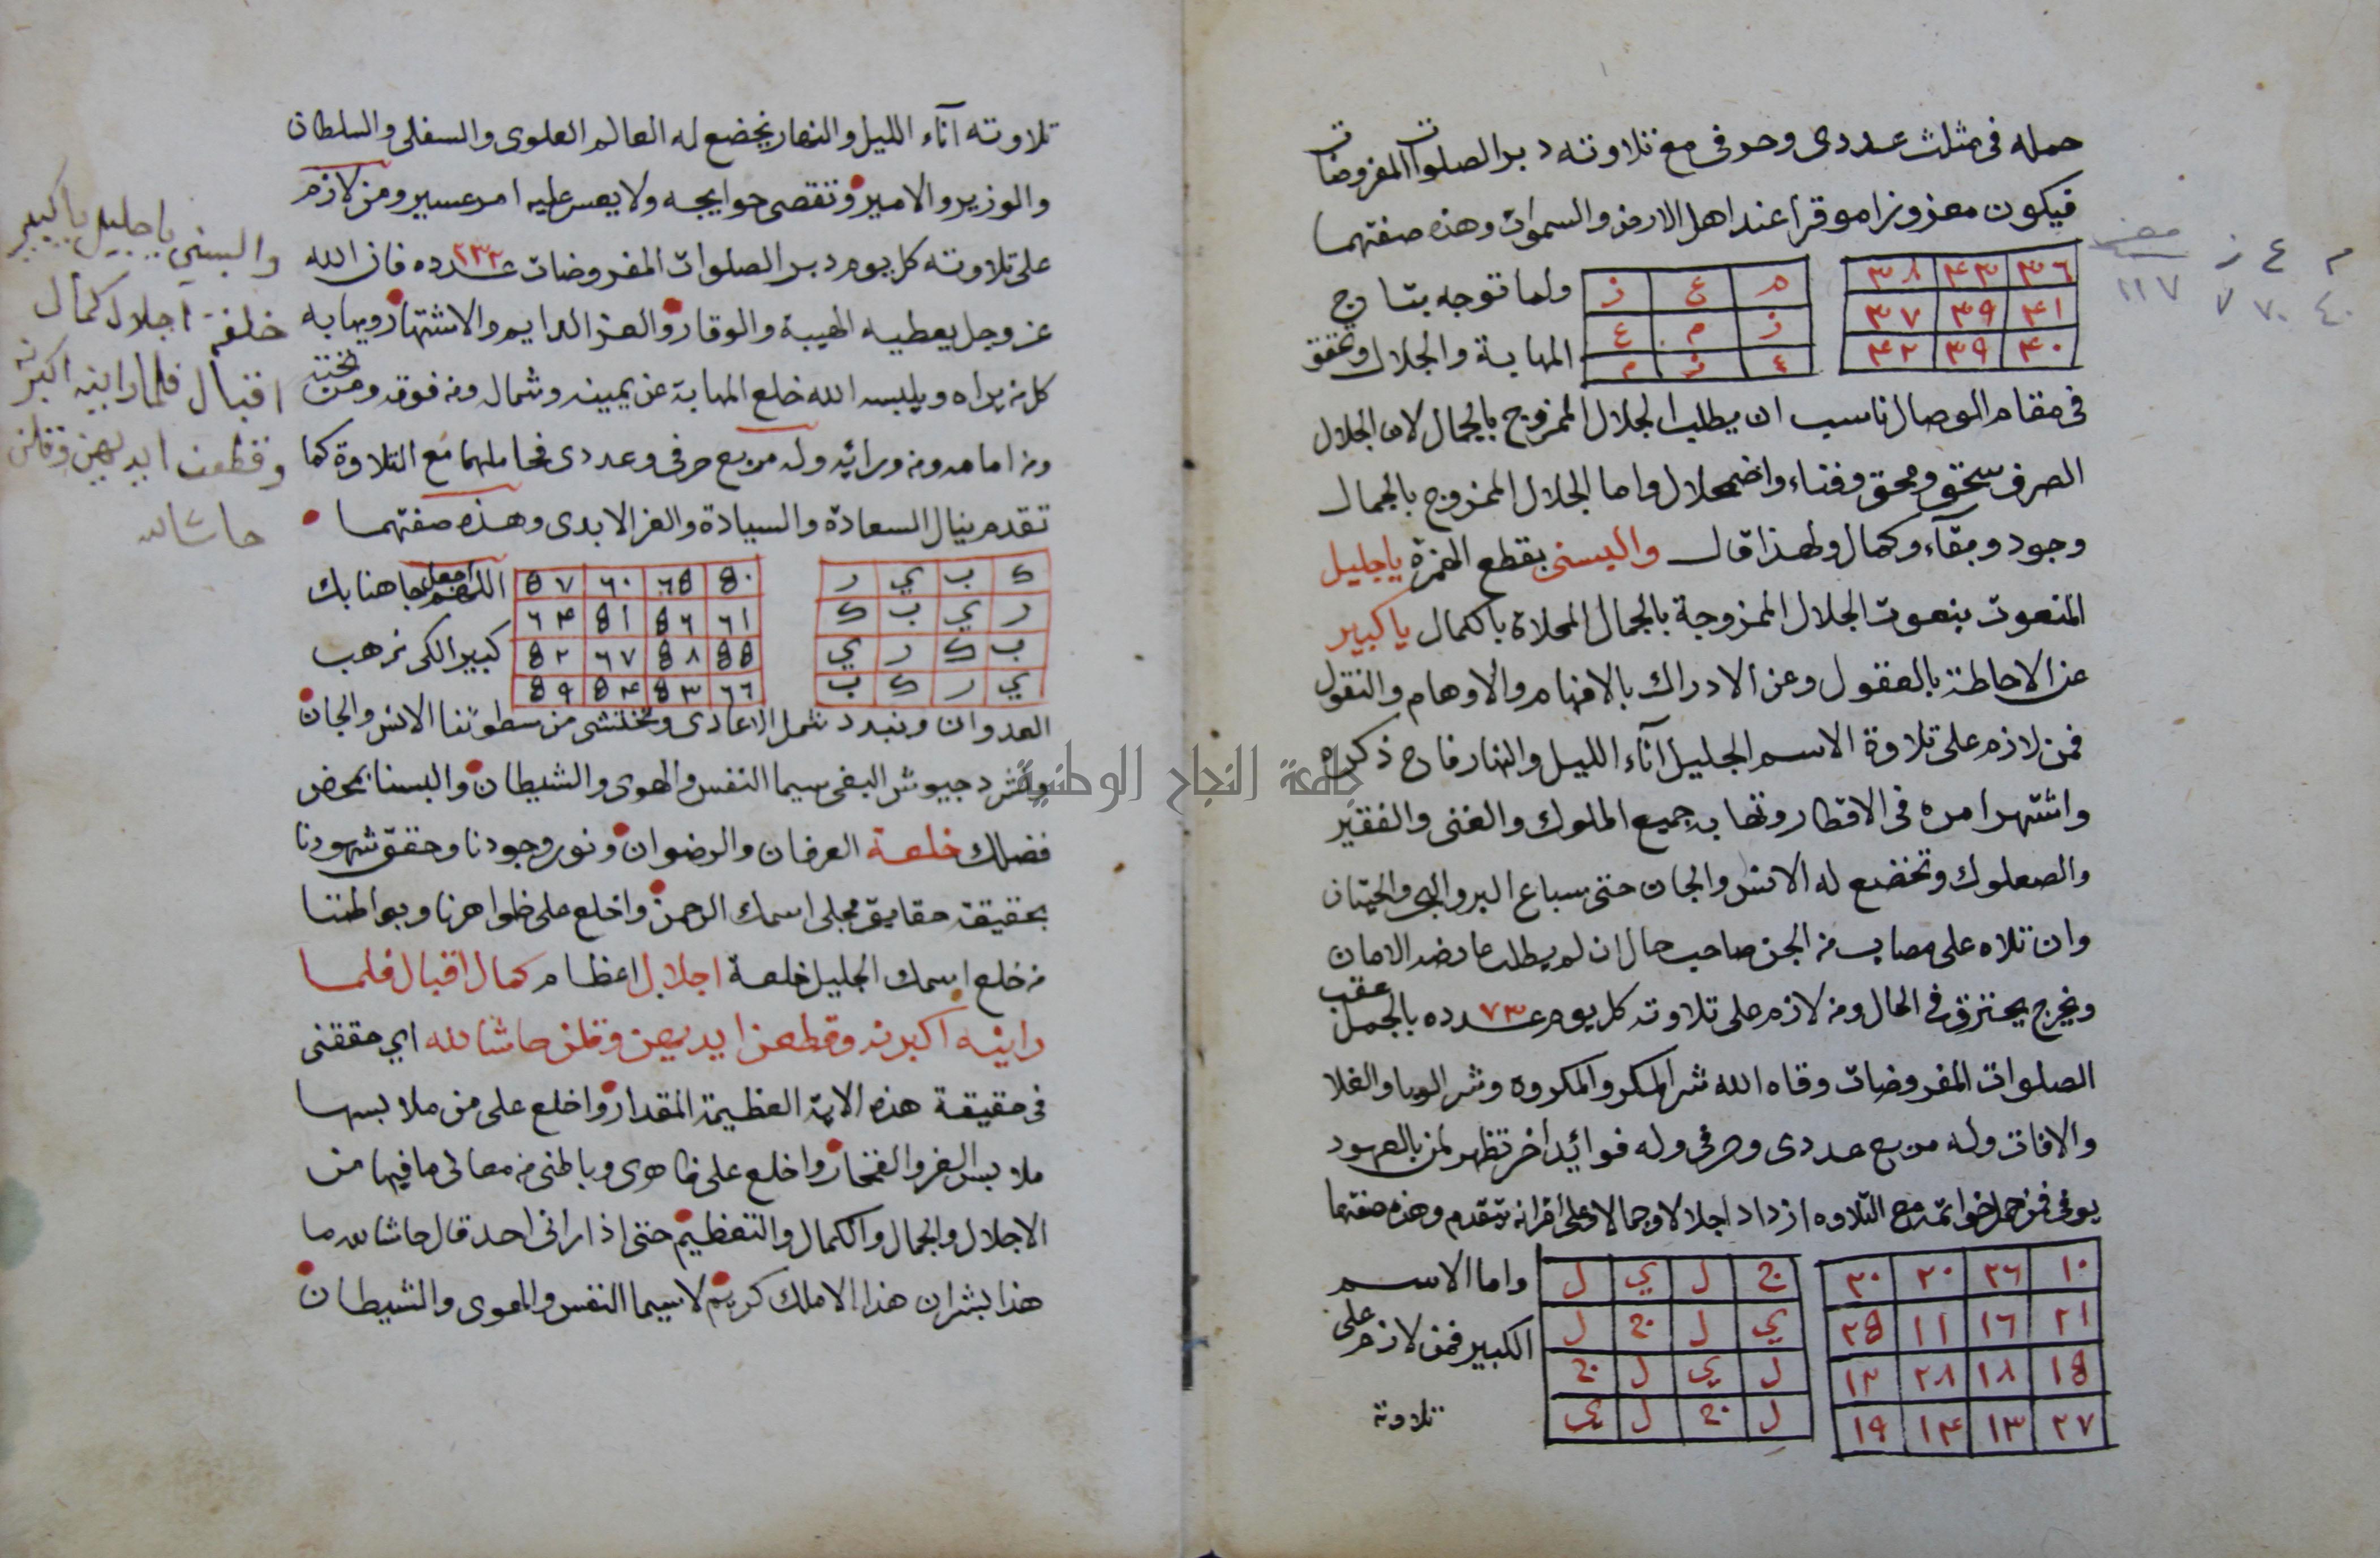 حمله في مثلث عددي وحرفي مع تلاوته دبر الصلوات المفروضات
فيكون معزوزا موقرا عند اهل الارض والسموات وهذه صفتهما
٣٦ ٤٣ ٣٨
٤١ ٣٩ ٣٧
٤٠ ٣٩ ٤٢
م ع ز
ز م ع
ع ز م
ولما توجه بتاج
المهابة والجلال وتحقق
في مقام الوصال ناسب ان يطلب الجلال الممزوج بالجمال لان الجلال
الصرف سحق ومحق وفناء واضمحلال واما الجلال الممزوج بالجمال
وجود وبقآء وكمال ولهذا قال والبسني بقطع الهمزة ياجليل
المنعوت بنعوت الجلال الممزوجة بالجمال المحلاة بالكمال ياكبير
عن الاحاطة بالعقول وعن الادراك بالافهام والاوهام والنقول
فمن لازم على تلاوة الاسم الجليل آناء الليل والنهار فاح ذكره
واشتهر امره في الاقطار وتهابه جميع الملوك والغني والفقير
والصعلوك وتخضع له الانس والجان حتى سباع البر والبحر والحيتان
وان تلاه على مصاب من الجن صاحب حال ان لم يطلب عارضه الامان
ويخرج يحترق في الحال ومن لازم على تلاوته كل يوم عدده ٧٣ بالجمل عقب
الصلوات المفروضات وقاه الله شر المكر والمكروه وشر الوبا والغلا
والافات وله مربع عددي وحرفي وله فوائد اخر تظهر لمن بالعهود
يوفي فمن حمل خواتمه مع التلاوه ازداد اجلالا وجمالا وعلى اقرانه يتقدم وهذه صفتهما
١٠ ٢٦ ٢٠ ٣٠
٢١ ١٦ ١١ ٢٥
١٥ ١٨ ٢٨ ١٢
٢٧ ١٣ ١٤ ١٩
ج ل ي ل
ي ل ج ل
ل ي ل ج
ل ج ل ي
واما الاسم
الكبير فمن لازم على
تلاوته
م ع ز
٤٠ ٧٠ ٧
معز
١١٧
تلاوته آناء الليل والنهار يخضع له العالم العلوي والسفلي والسلطان
والوزير والامير وتقضى حوايجه ولا يعسر عليه امر عسير ومن لازم
على تلاوته كل يوم دبر الصلوات المفروضات عدده ٢٣٢ فان الله
عز وجل يعطيه الهيبة والوقار والعز الدايم والاشتهار ويهابه
كل من يراه ويلبسه الله خلع المهابة عن يمينه وشماله ومن فوقه ومن تحته
ومن امامه ومن ورائه وله مربع حرفي وعددي فحاملهما مع التلاوة كما
تقدم ينال السعادة والسيادة والعز الابدي وهذه صفتهما
ك ب ي ر
ر ي ب ك
ب ك ر ي
ي ر ك ب
٥٠ ٦٥ ٦٠ ٥٧
٦١ ٥٦ ٥١ ٦٤
٥٥ ٥٨ ٦٧ ٥٢
٦٦ ٥٣ ٥٤ ٥٩
اللهم اجعل جاهنا بك
كبيرا لكي نرهب
العدوان ونبدد شمل الاعادي وتختشي من سطوتنا الانس والجان
ونشرد جيوش البغي سيما النفس والهوى والشيطان والبسنا بمحض
فضلك خلعة العرفان والرضوان ونور وجودنا وحقق شهودنا
بحقيقة حقايق مجلى اسمك الرحمن واخلع على ظواهرنا وبواطننا
من خلع اسمك الجليل خلعة اجلال اعظام كمال اقبال فلما
راينه اكبرنه وقطعن ايديهن وقلن حاش لله اي حققني
في حقيقة هذه الاية العظيمة المقدار واخلع علي من ملابسها
ملابس العز والفخار واخلع على ظاهري وباطني من معاني ما فيها من
الاجلال والجمال والكمال والتعظيم حتى اذا راني احد قال حاش لله ما
هذا بشر ان هذا الا ملك كريم لاسيما النفس والهوى والشيطان
والبسني ياجليل ياكبير
خلعة اجلال كمال
اقبال فلما راينه اكبرنه
وقطعن ايديهن وقلن
حاش لله
جامعة النجاح الوطنية